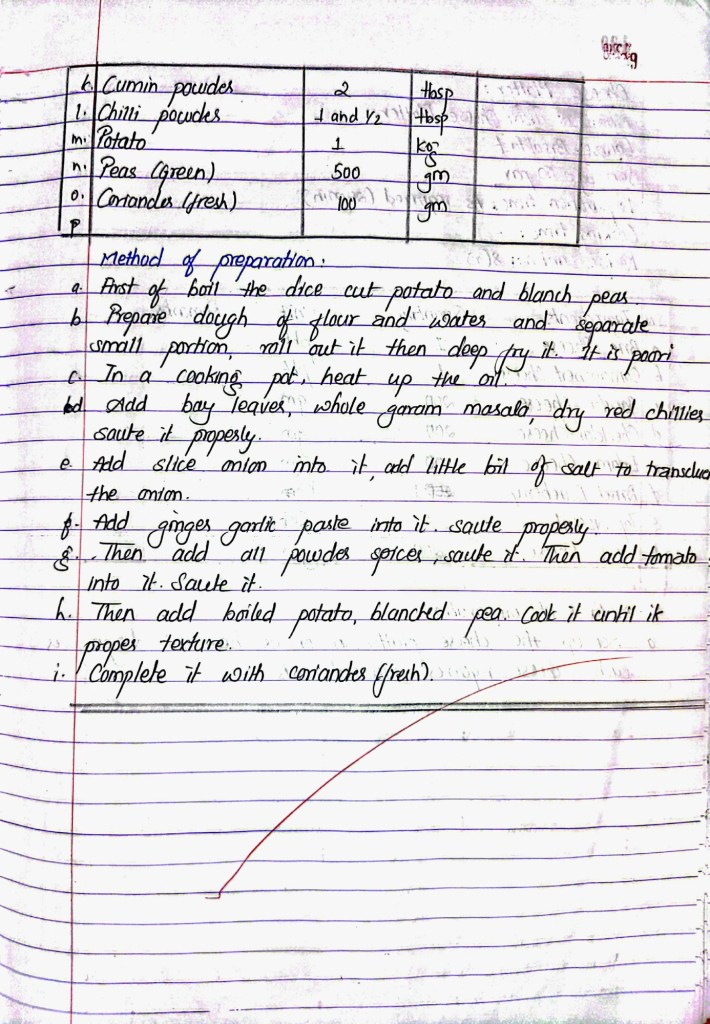 k. Cumin powder 2 tbsp
l. Chilli powder 1 and 1/2 tbsp
m. Potato 1 kg
n. Peas (green) 500 gm
o. Coriander (fresh) 100 gm
p
Method of preparation:
a. First of boil the dice cut potato and blanch peas
b. Prepare dough of flour and water and separate
small portion, roll out it then deep fry it. It is poori
c. In a cooking pot, heat up the oil.
d Add bay leaves, whole garam masala, dry red chillies
saute it properly.
e. Add slice onion into it, add little bit of salt to transluc
the onion.
f. Add ginger garlic paste into it. saute properly.
g. Then add all powder spices, saute it. Then add tomato
into it. Saute it.
h. Then add boiled potato, blanched pea. Cook it until it
proper texture.
i. Complete it with coriander (fresh).